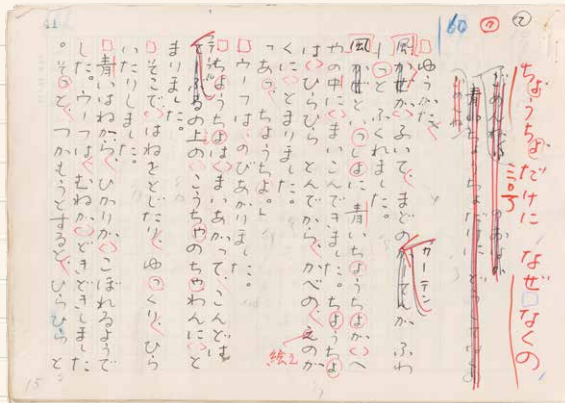 41
160
ア
ちょうちょだけに なぜ なくの
三号
ゆうがた
風がふいて、まどのカーテンが ふわ
ーっと ふくれました。
風といっしょに 青いちょうちょが へ
やの中に まいこんできました。ちょうちょ
は ひらひら とんでから、かべの えのが
くに とまりました。
絵え
「あっ、ちょうちょ。」
ウーフは のびあがりました。
ちょうちょは まいあがって、こんどは
テーブルの上の こうちゃの ちゃわんに と
まりました。
そこで はねを とじたり、ゆっくり、ひら
いたりしました。
青いはねから、ひかりが こぼれるようで
した。ウーフは むねが どきどきしました
。そっと つかもうとすると、ひらひらと
15